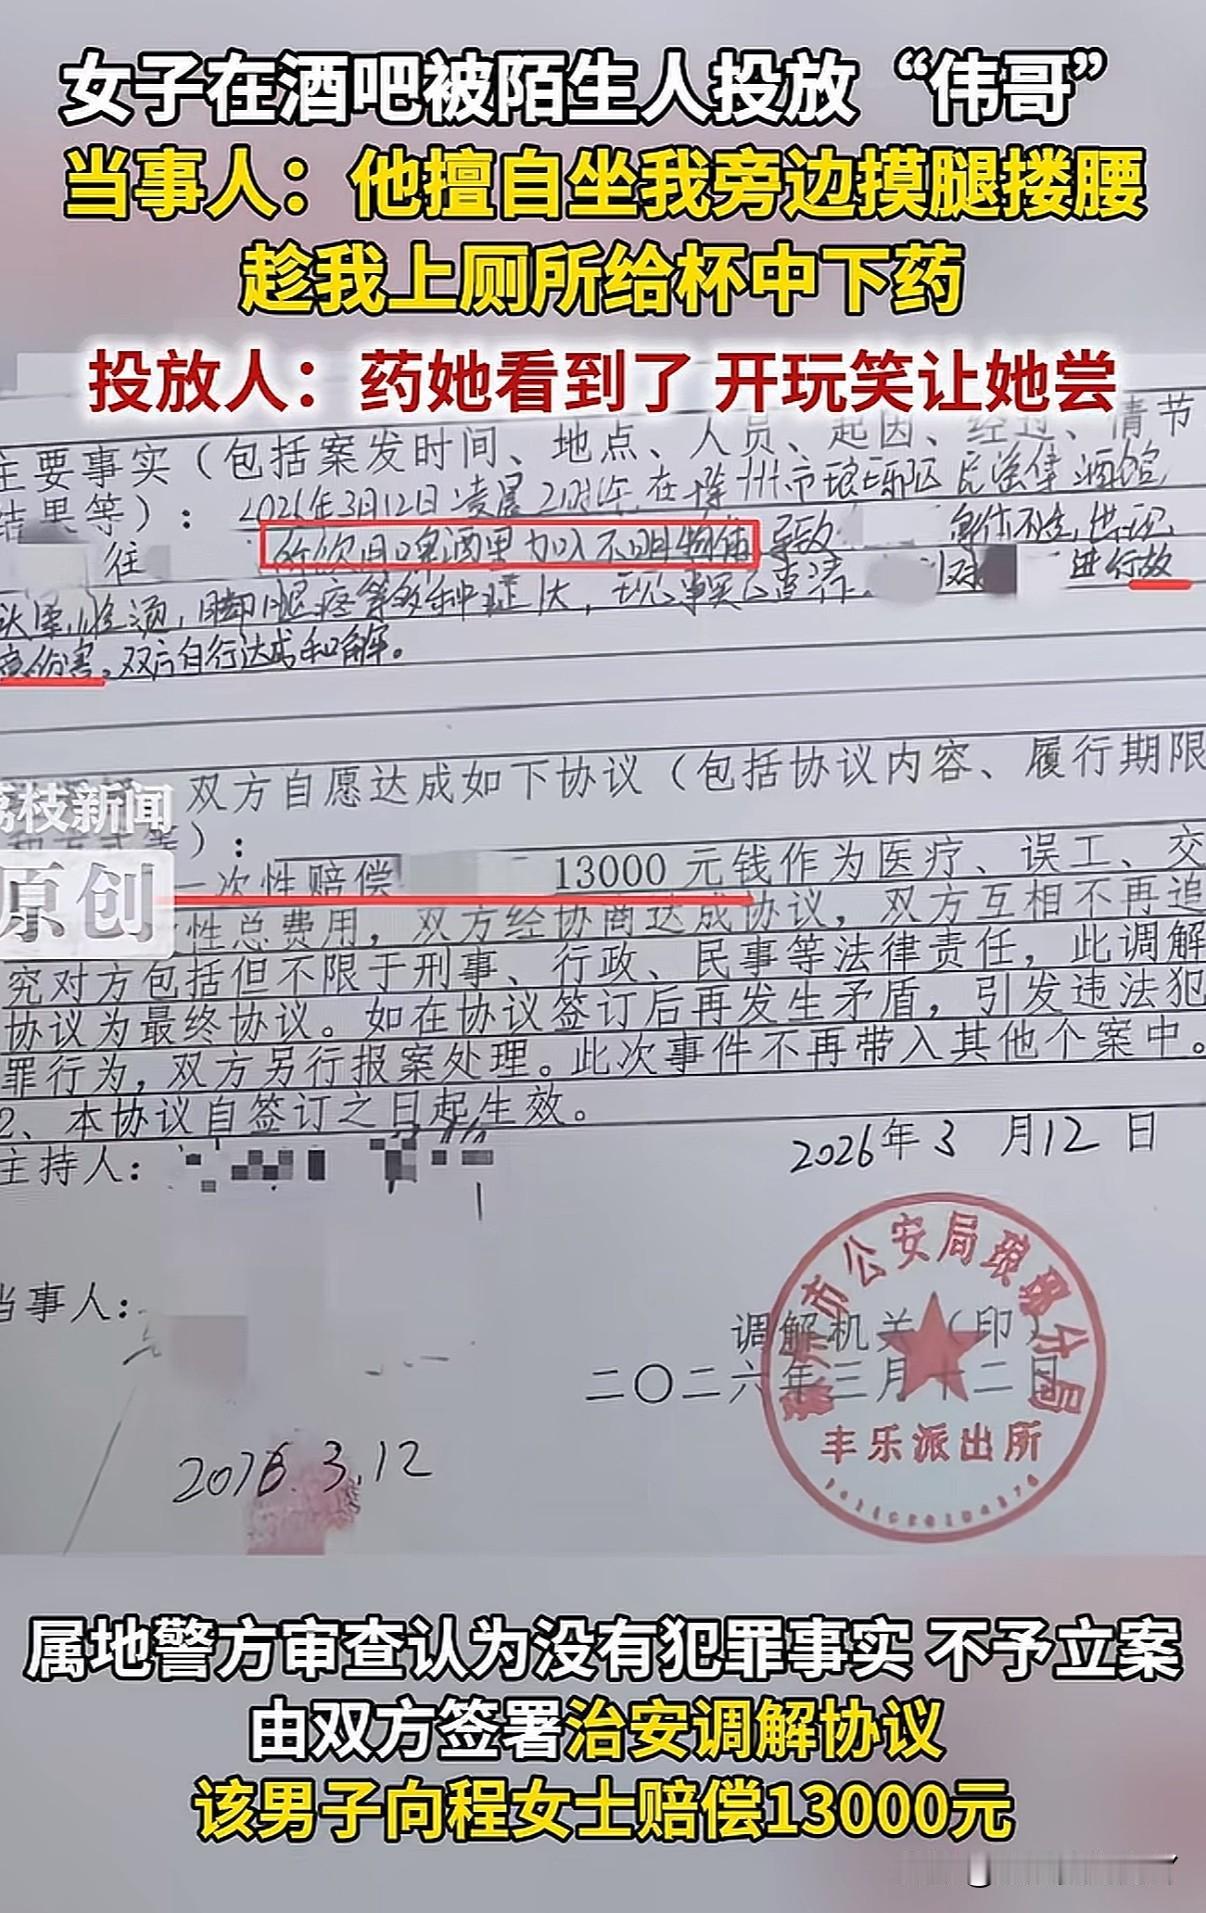 女子在酒吧被陌生人投放“伟哥”
当事人：他擅自坐我旁边摸腿搂腰
趁我上厕所给杯中下药
投放人：药她看到了 开玩笑让她尝
主要事实（包括案发时间、地点、人员、起因、经过、情节
结果等）：2026年3月12日凌晨2时许,在滁州市琅琊区民谣集酒馆
往 所饮用啤酒里加入不明物体 导致 身体不适,出现
头晕,脸烫,脚腿疼等多种症状,现事实已查清. 对 进行故
意伤害.双方自行达成和解.
双方自愿达成如下协议（包括协议内容、履行期限
和方式等）：
荔枝新闻
原创
一次性赔偿 13000元钱作为医疗、误工、交
性总费用，双方经协商达成协议，双方互相不再追
究对方包括但不限于刑事、行政、民事等法律责任，此调解
协议为最终协议。如在协议签订后再发生矛盾，引发违法犯
罪行为，双方另行报案处理。此次事件不再带入其他个案中。
2、本协议自签订之日起生效。
主持人：
2026年3月12日
当事人：
调解机关（印）
二〇二六年三月十二日
滁州市公安局琅琊分局
丰乐派出所
2026.3.12
属地警方审查认为没有犯罪事实 不予立案
由双方签署治安调解协议
该男子向程女士赔偿13000元